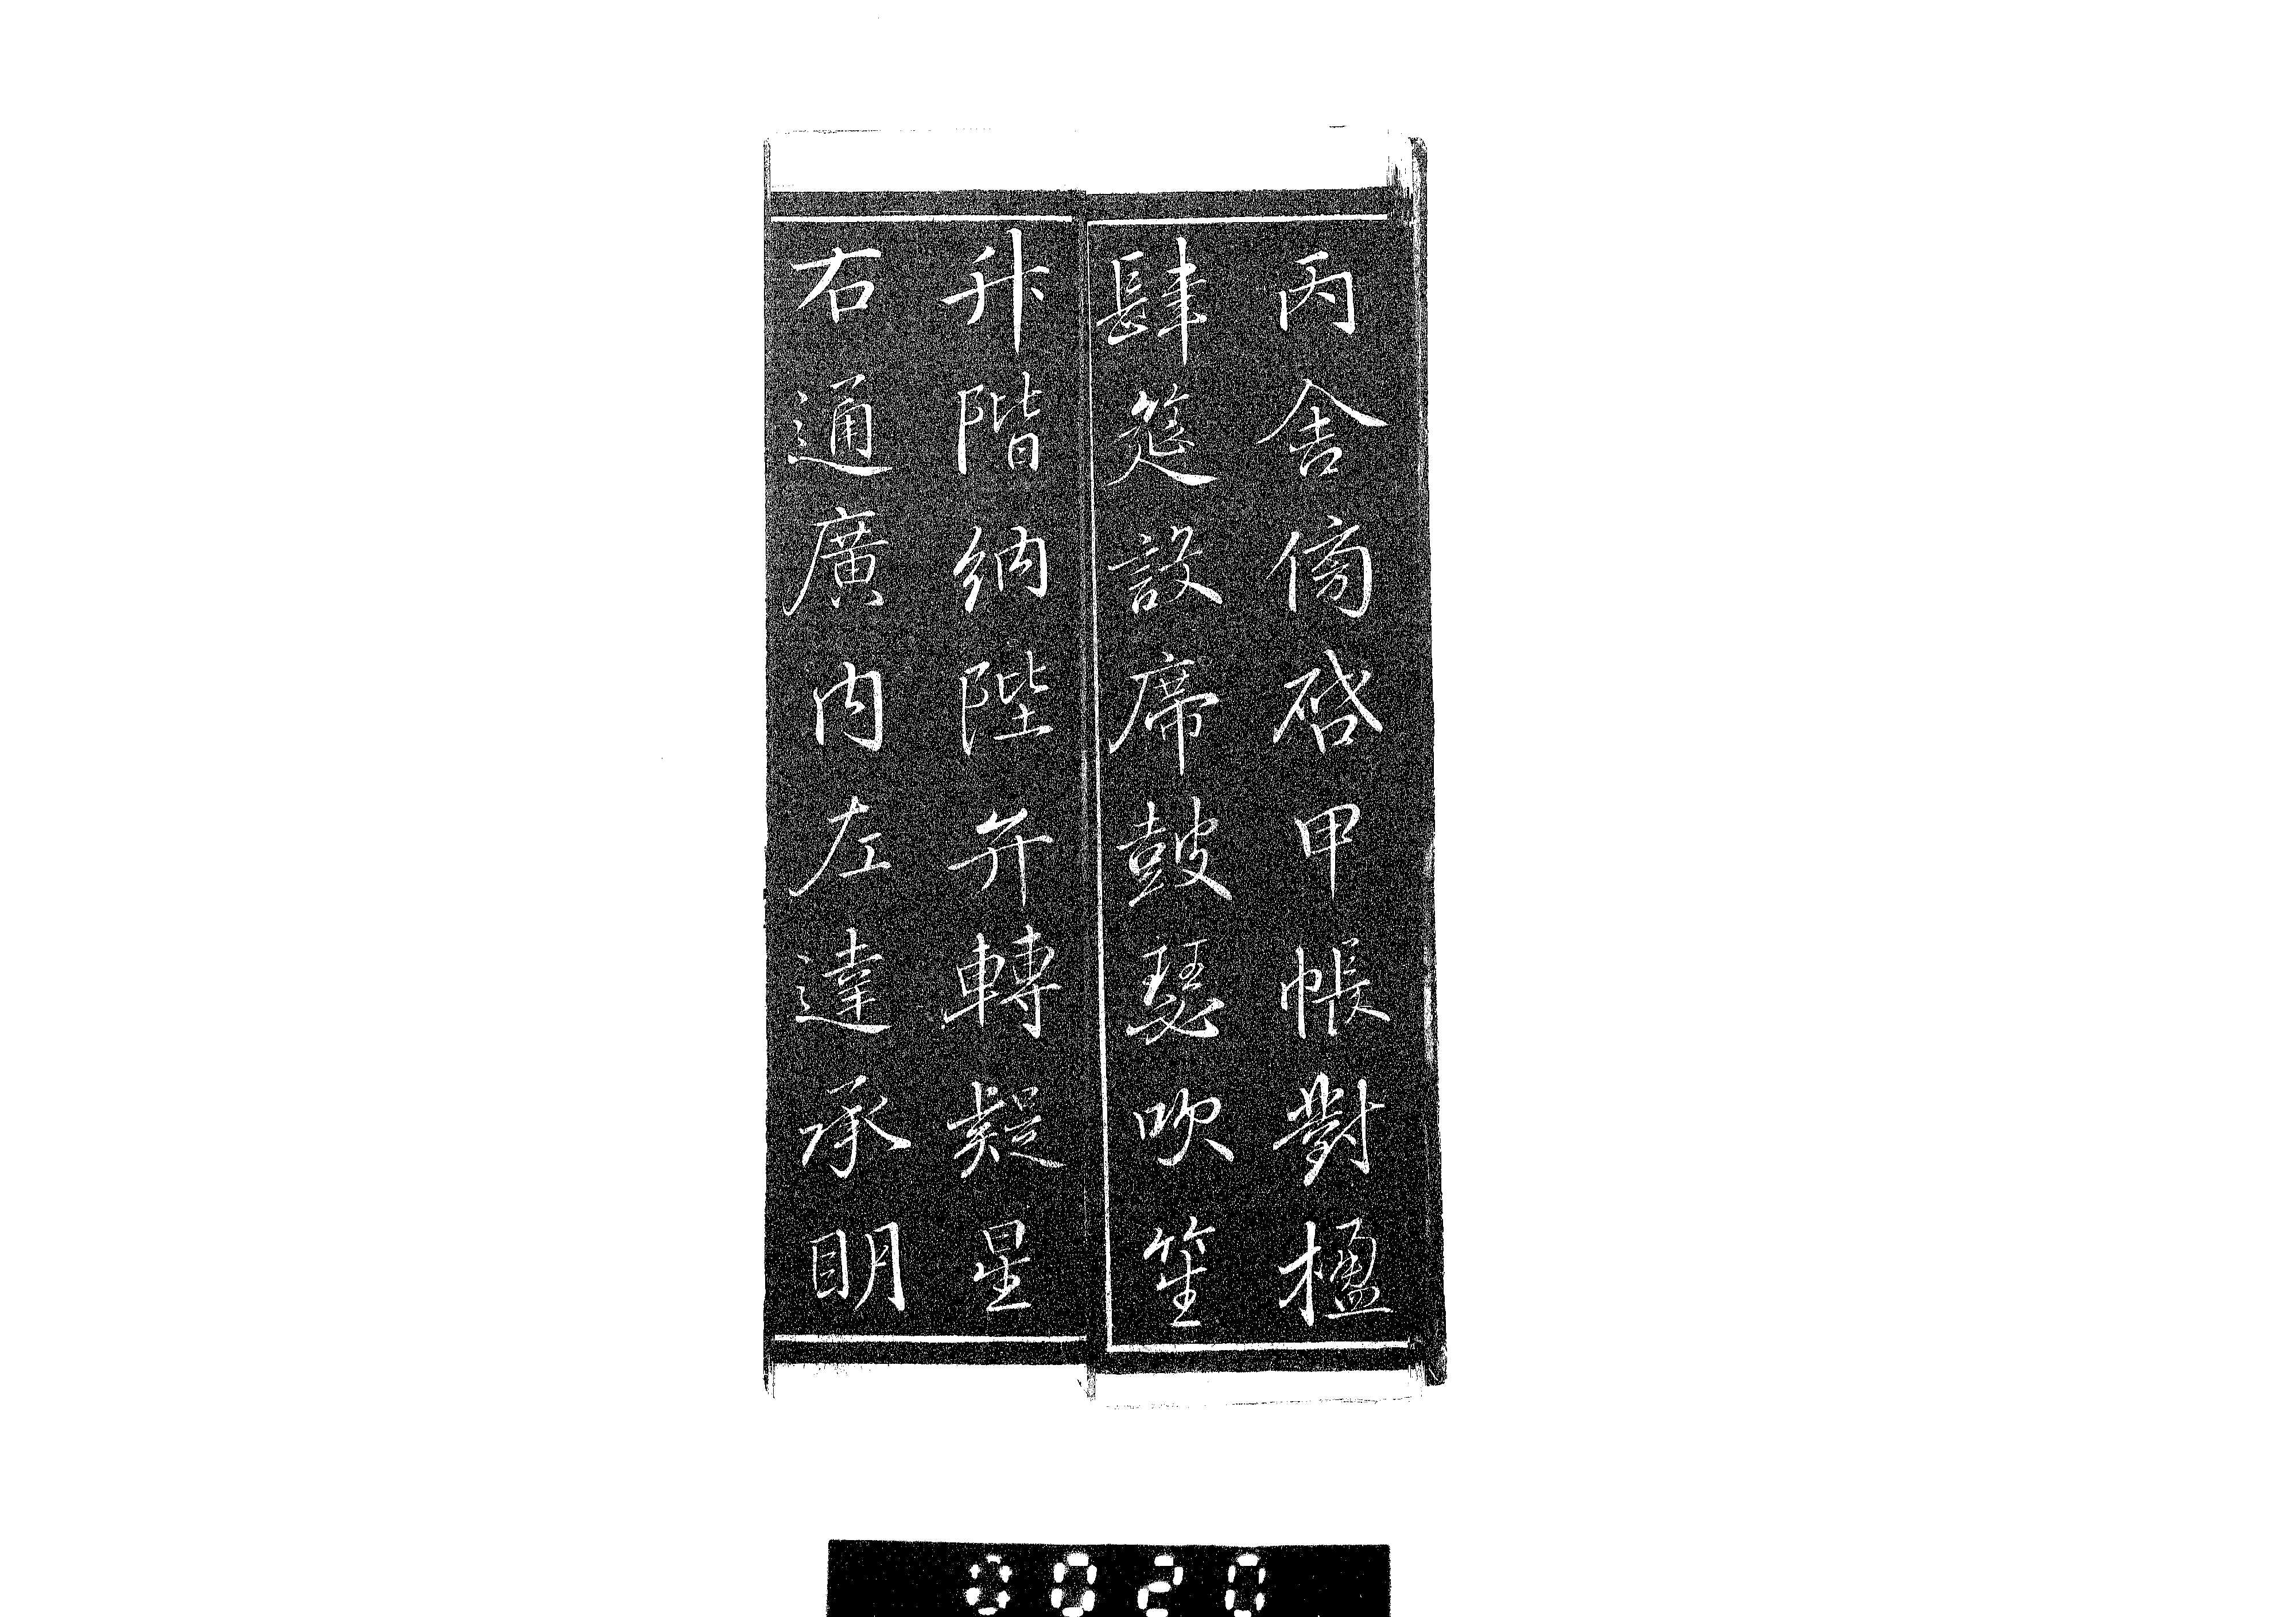 丙舍傍啓甲帳對楹
肆筵設席鼓瑟吹笙
升階納陛弁轉疑星
右通廣内左達承明
0020